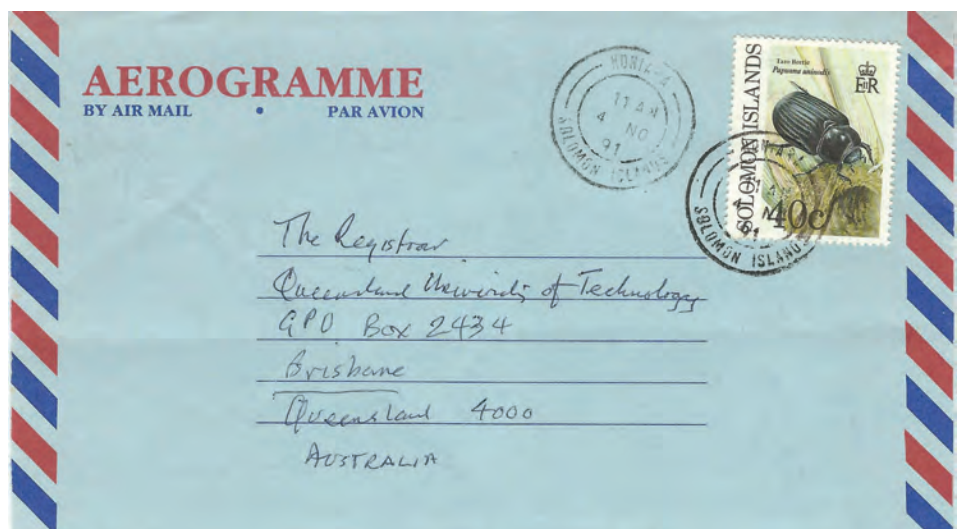 AEROGRAMME
BY AIR MAIL • PAR AVION
HONIARA
11 AM
4 NO
91
SOLOMON ISLANDS
SOLOMON ISLANDS
Taro Beetle
Papuana uninodis
E II R
40c
HONIARA
11 AM
4 NO
91
SOLOMON ISLANDS
The Registrar
Queensland University of Technology
GPO Box 2434
Brisbane
Queensland 4000
AUSTRALIA